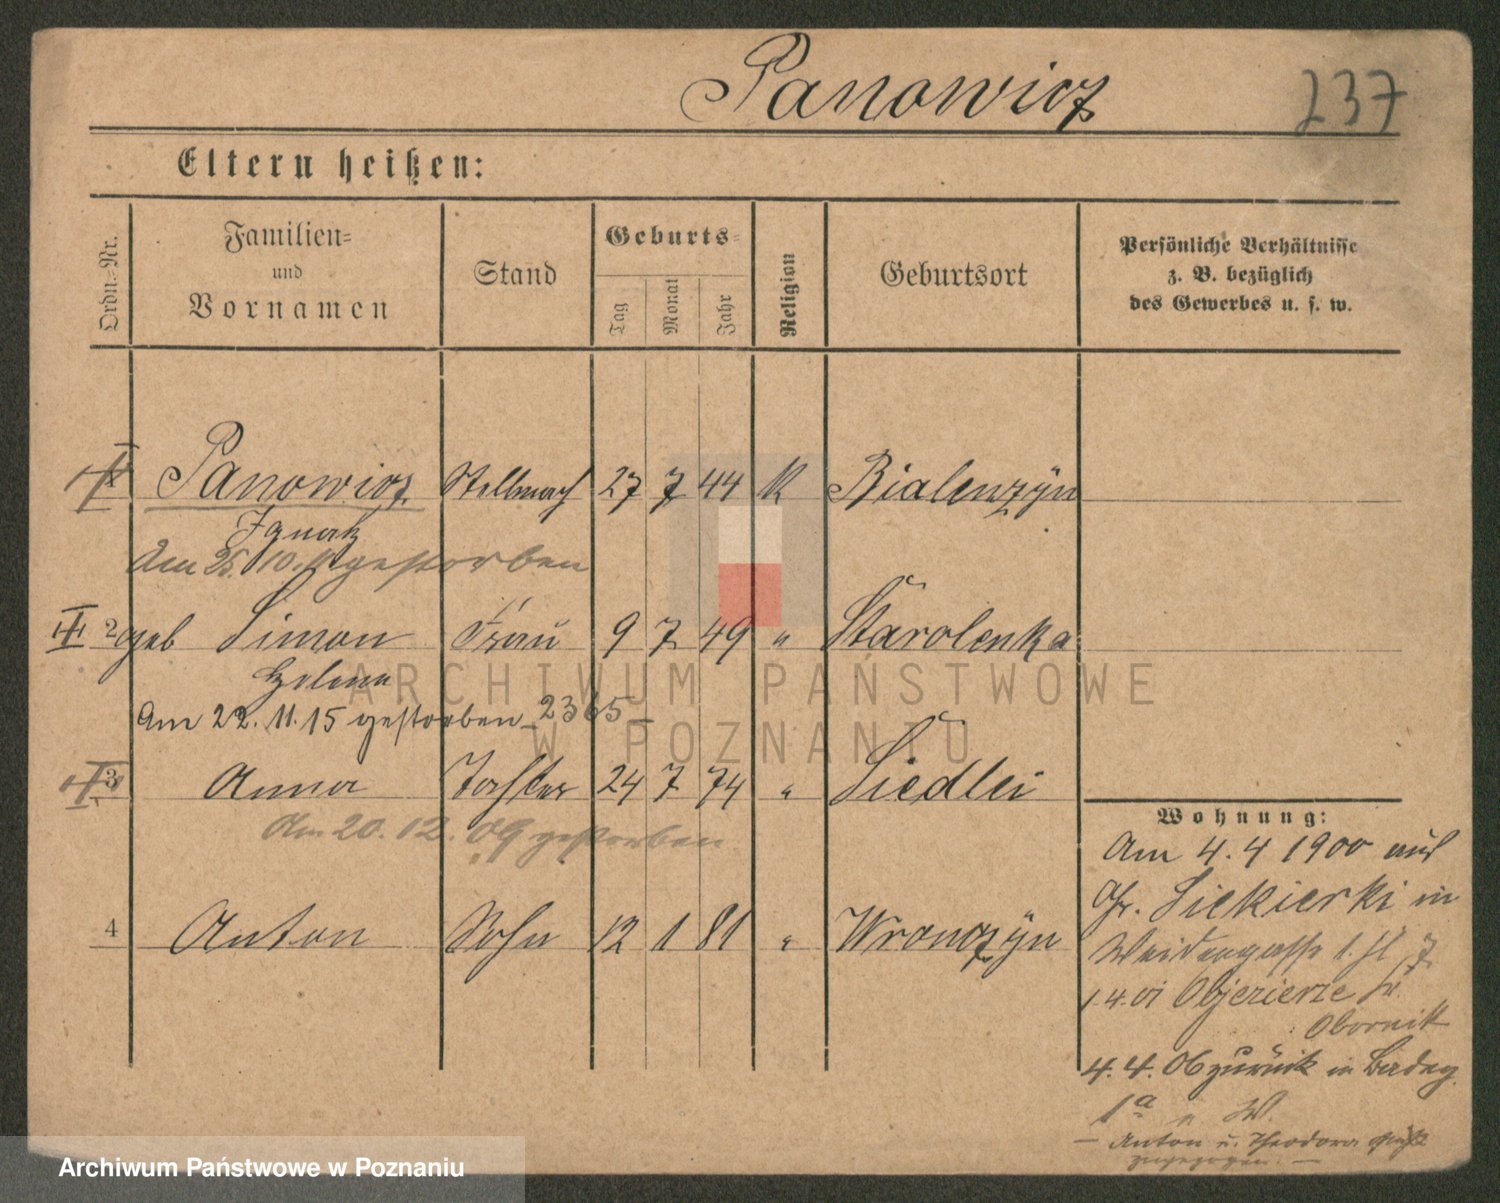 Panowicz 237
Eltern heißen:
Ordn.-Nr. Familien- und Vornamen Stand Geburts- Tag Monat Jahr Religion Geburtsort Persönliche Verhältnisse z. B. bezüglich des Gewerbes u. s. w.
Panowicz Stellmach 27 7 44 K Bialenzÿn
Ignatz
Am 25. 10. gestorben
2 geb Simon Frau 9 7 49 " Starolenka
Helena
Am 22. 11. 15 gestorben 2365
3 Anna Tochter 24 7 74 " Siedlei
Am 20. 12. 09 gestorben
4 Anton Sohn 12 1 81 " Wronczÿn
Wohnung:
Am 4. 4 1900 aus
Gr. Siekierki in
Weidengasse 1.
1.4.01 Objezierze Kr.
Obornik
4. 4. 06 zurück in
1a " W.
Anton u. Theodora
zugezogen.
ARCHIWUM PAŃSTWOWE
W POZNANIU
Archiwum Państwowe w Poznaniu